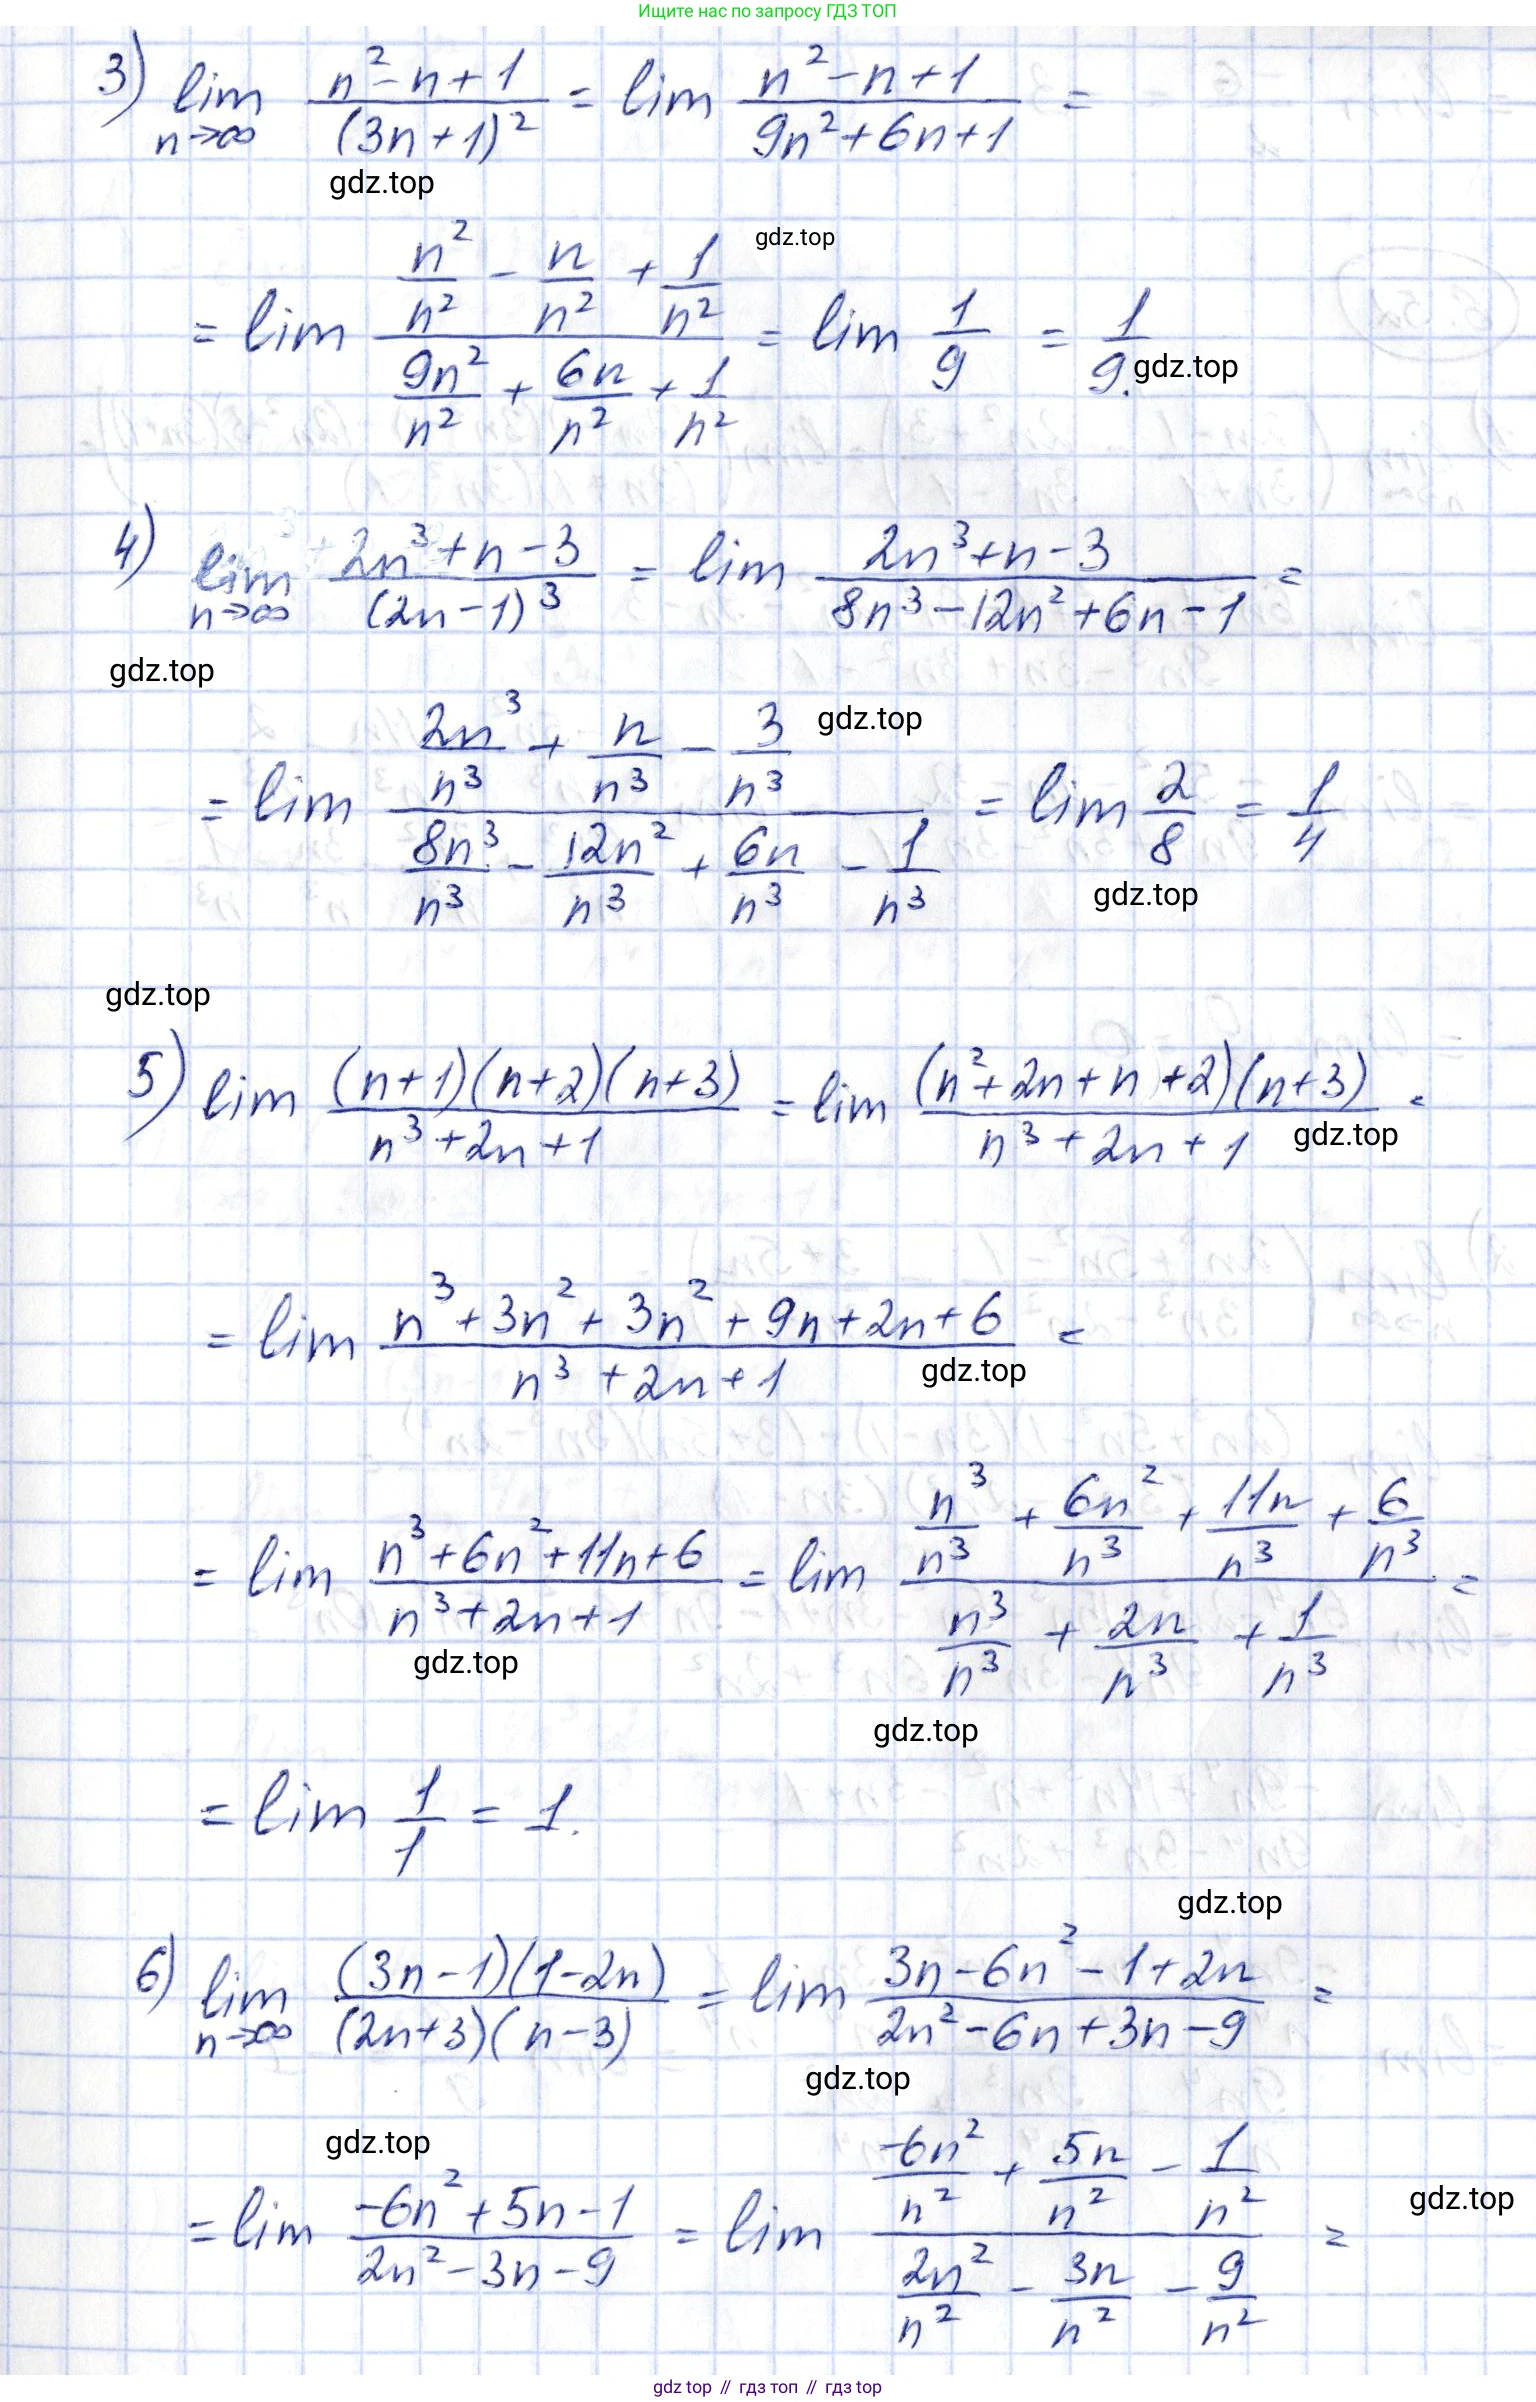 Ищите нас по запросу ГДЗ ТОП
3) lim n→∞ (n² - n + 1)/((3n + 1)²) = lim (n² - n + 1)/(9n² + 6n + 1) =
gdz.top
gdz.top
= lim (n²/n² - n/n² + 1/n²)/(9n²/n² + 6n/n² + 1/n²) = lim 1/9 = 1/9.
gdz.top
4) lim n→∞ (2n³ + n - 3)/((2n - 1)³) = lim (2n³ + n - 3)/(8n³ - 12n² + 6n - 1) =
gdz.top
gdz.top
= lim (2n³/n³ + n/n³ - 3/n³)/(8n³/n³ - 12n²/n³ + 6n/n³ - 1/n³) = lim 2/8 = 1/4
gdz.top
gdz.top
5) lim ((n+1)(n+2)(n+3))/(n³ + 2n + 1) = lim ((n² + 2n + n + 2)(n+3))/(n³ + 2n + 1) =
gdz.top
= lim (n³ + 3n² + 3n² + 9n + 2n + 6)/(n³ + 2n + 1) =
gdz.top
= lim (n³ + 6n² + 11n + 6)/(n³ + 2n + 1) = lim (n³/n³ + 6n²/n³ + 11n/n³ + 6/n³)/(n³/n³ + 2n/n³ + 1/n³) =
gdz.top
gdz.top
= lim 1/1 = 1.
gdz.top
6) lim n→∞ ((3n - 1)(1 - 2n))/((2n + 3)(n - 3)) = lim (3n - 6n² - 1 + 2n)/(2n² - 6n + 3n - 9) =
gdz.top
gdz.top
= lim (-6n² + 5n - 1)/(2n² - 3n - 9) = lim (-6n²/n² + 5n/n² - 1/n²)/(2n²/n² - 3n/n² - 9/n²) =
gdz.top
gdz top // гдз топ // гдз top